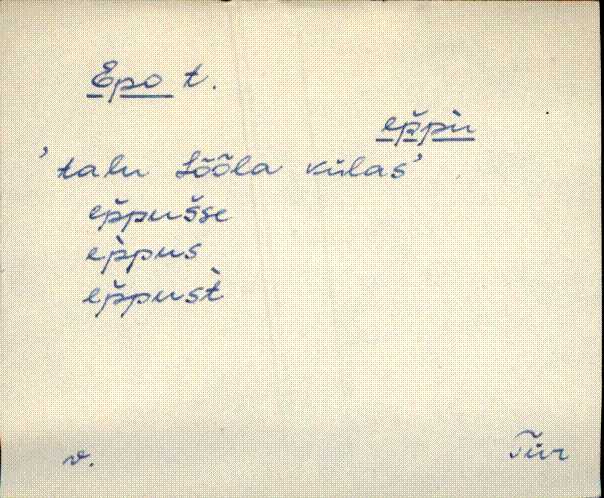 Epo t.
ep̆pù
'talu Lõõla külas'
ep̆pušse
ep̀pus
ep̆pust̀
v. Tür